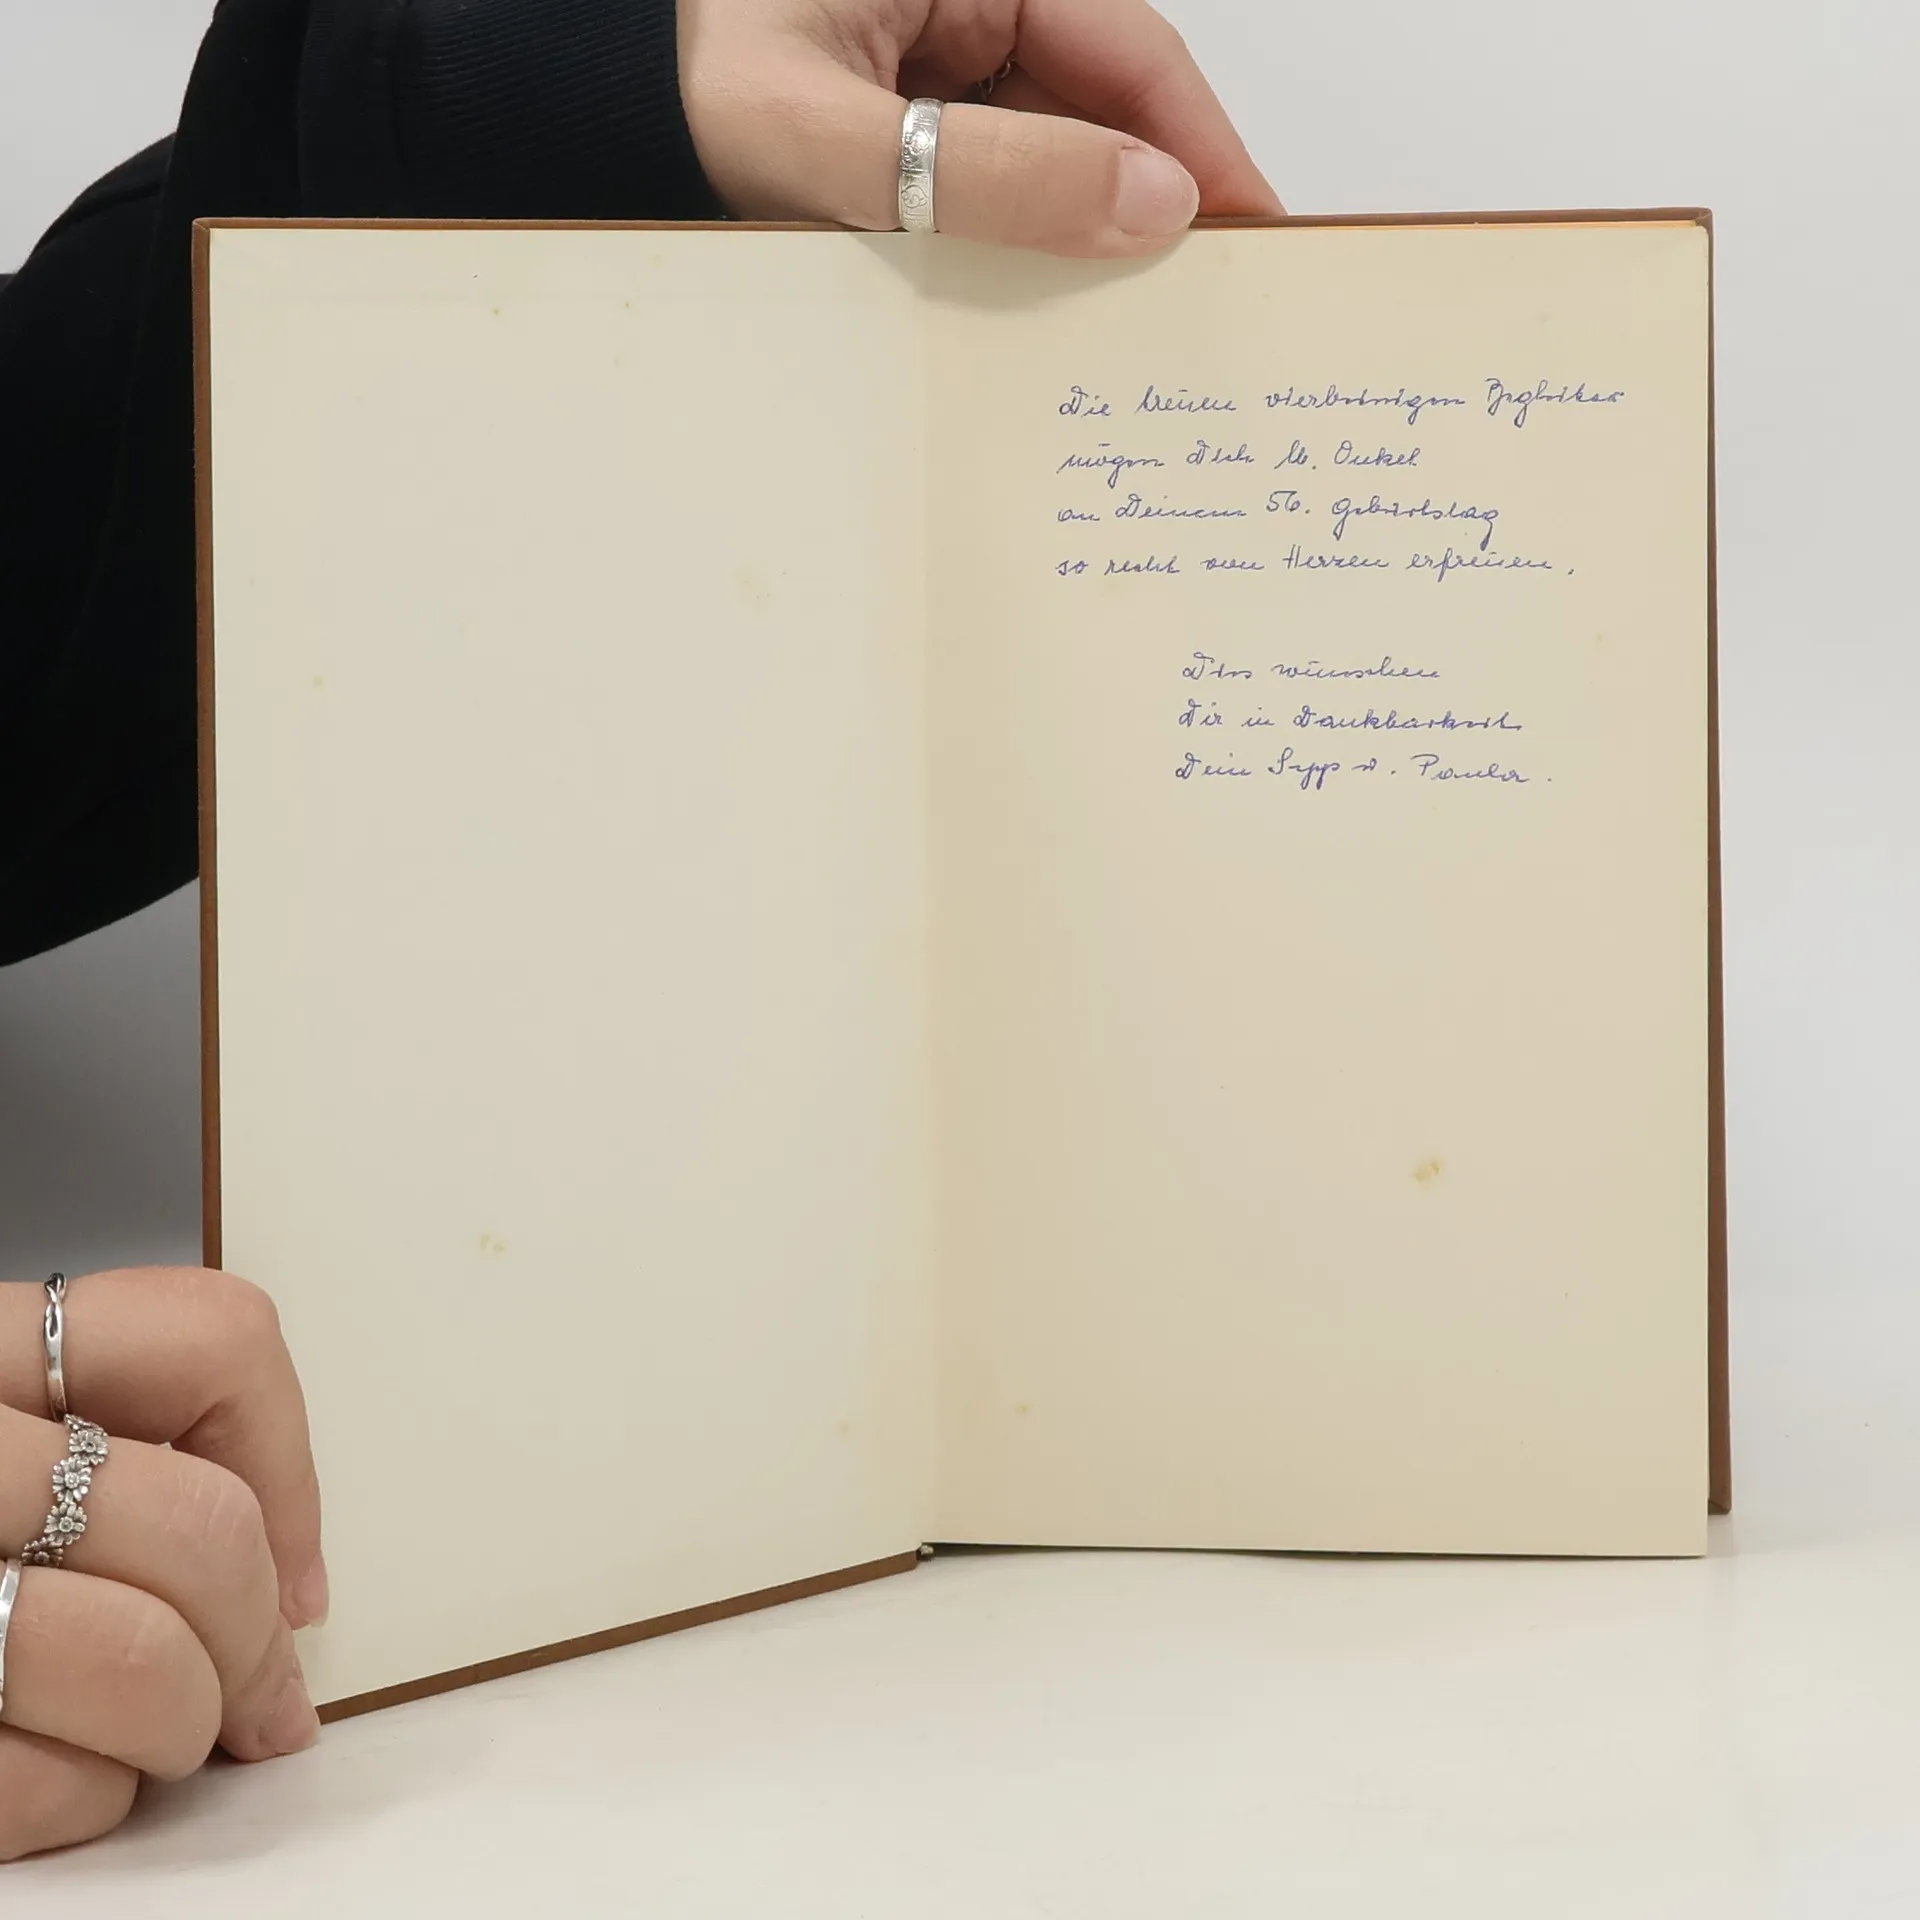 Die treuen vierbeinigen Begleiter
mögen Dich lb. Onkel
an Deinem 56. Geburtstag
so recht von Herzen erfreuen.
Dies wünschen
Dir in Dankbarkeit
Dein Sepp u. Paula.